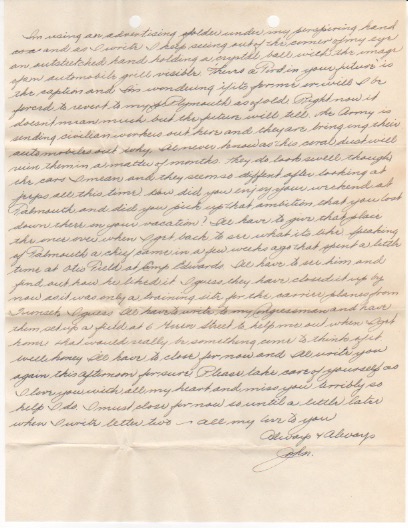 I'm using an advertising folder under my perspiring hand
and as I write I keep seeing out of the corner of my eye
an outstretched hand holding a crystal ball with the image
of an automobile grill visible. There's a Ford in your future is
the caption and I'm wondering if it's for me or will I be
forced to revert to my Plymouth as of old. Right now it
doesn't mean much but the future will tell, the Army is
sending civilian workers out here and they are bringing their
automobiles but why I'll never know as this coral dust will
ruin them in a matter of months. They do look swell though,
the cars I mean and they seem so different after looking at
jeeps all this time. How did you enjoy your weekend at
Falmouth and did you pick up that position that you lost
down there on your vacation? I'll have to give that place
the once over when I get back to see what it's like. Speaking
of Falmouth a chief came in a few weeks ago that spent a little
time at Otis Field at Camp Edwards. I'll have to see him and
find out how he liked it. I guess they have closed it up by
now as it was only a training site for the carrier planes from
I guess I'll have to write to my Congressman and have
them set up a field at 6 Street to help me out when I get
home what would really be something come to think of it
well honey I'll have to close for now and I'll write you
again this afternoon for sure. Please take care of yourself as
I love you with all my heart and miss you terribly so
help I do. I must close for now so until a little later
when I write letter two - all my love to you
Always & Always
John.